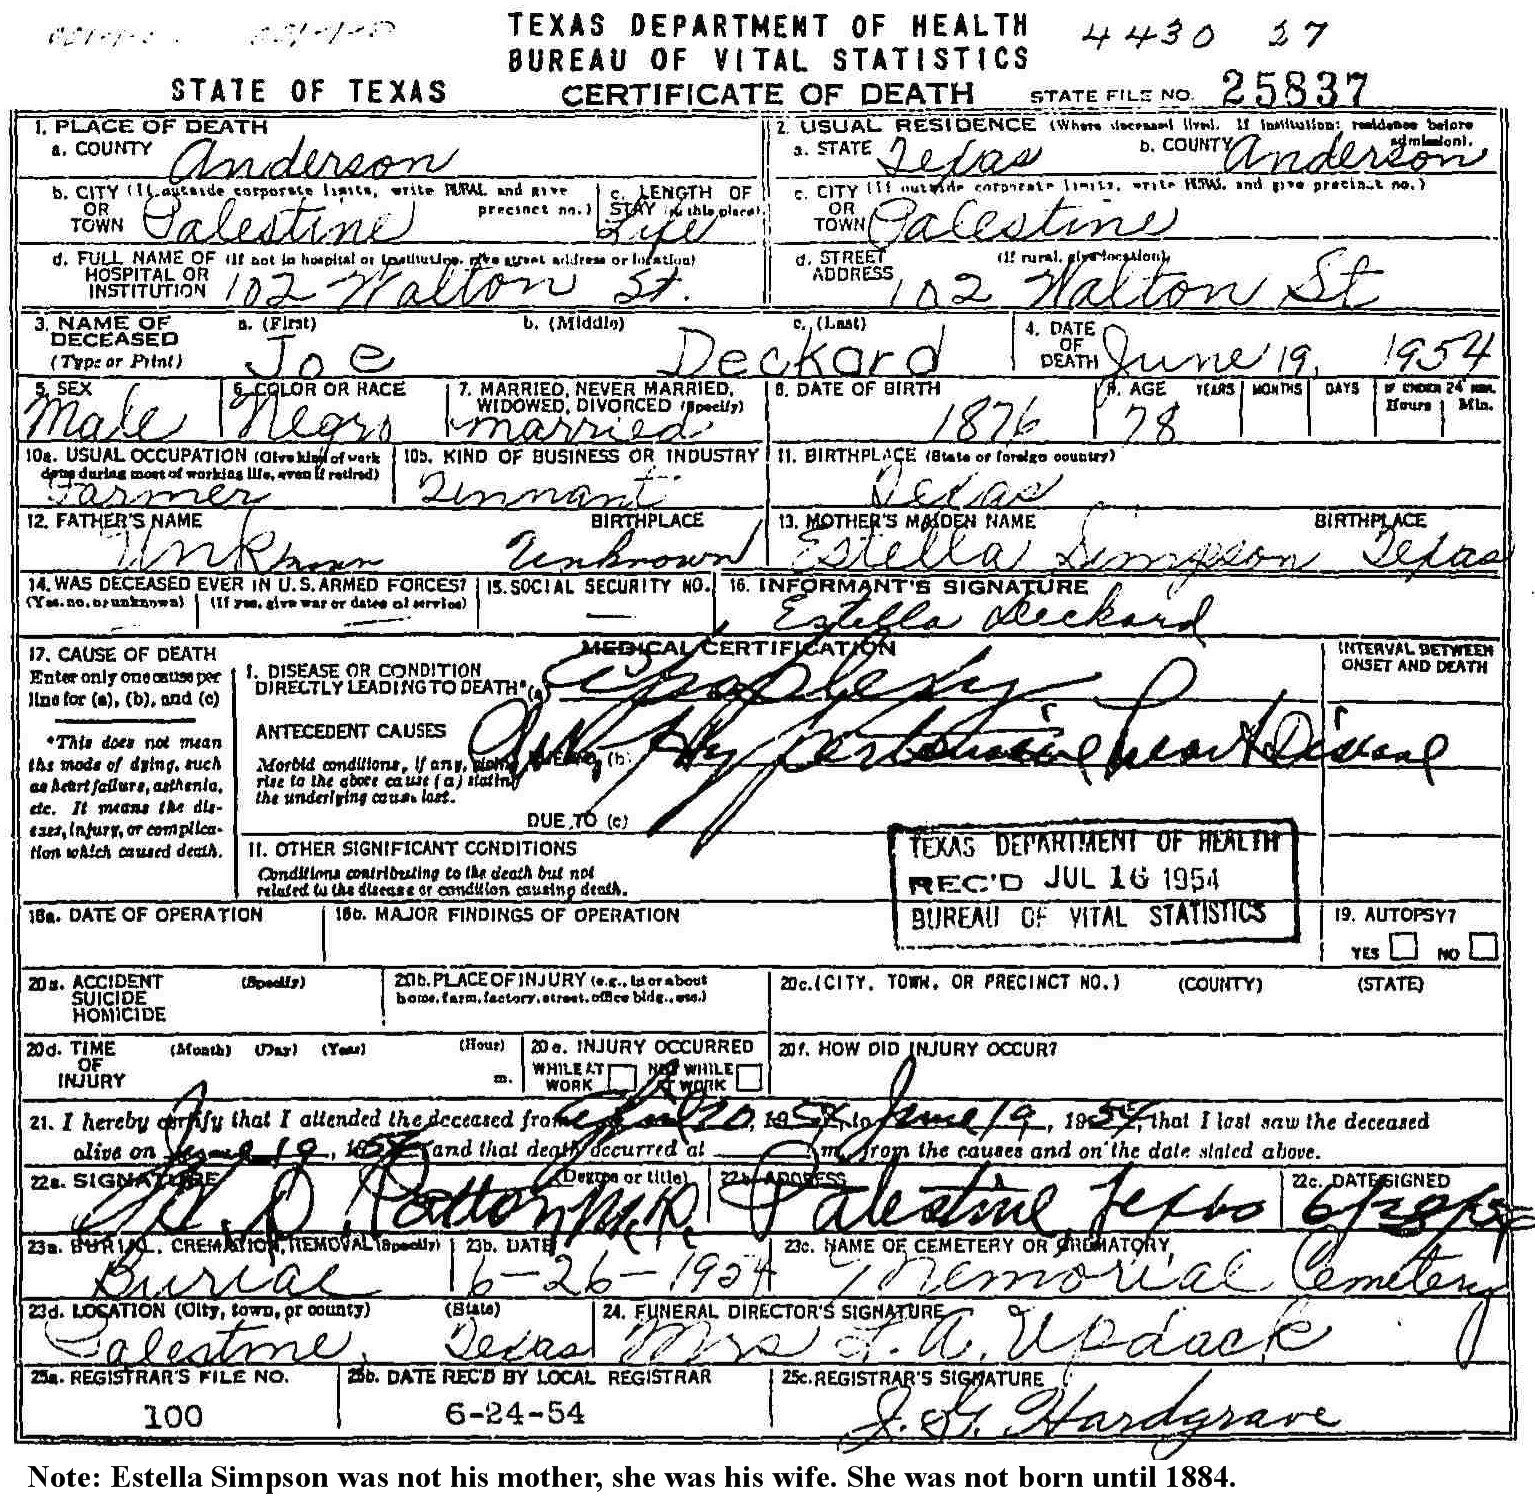 TEXAS DEPARTMENT OF HEALTH 4430 27
BUREAU OF VITAL STATISTICS
STATE OF TEXAS CERTIFICATE OF DEATH STATE FILE NO. 25837
1. PLACE OF DEATH 2. USUAL RESIDENCE (Where deceased lived. If institution: residence before admission).
a. COUNTY Anderson a. STATE Texas b. COUNTY Anderson
b. CITY (If outside corporate limits, write RURAL and give precinct no.) OR TOWN Palestine c. LENGTH OF STAY (in this place) Life c. CITY (If outside corporate limits, write RURAL and give precinct no.) OR TOWN Palestine
d. FULL NAME OF HOSPITAL OR INSTITUTION (If not in hospital or institution, give street address or location) 102 Walton St. d. STREET ADDRESS (If rural, give location) 102 Walton St
3. NAME OF DECEASED (Type or Print) a. (First) Joe b. (Middle) c. (Last) Deckard 4. DATE OF DEATH June 19, 1954
5. SEX Male 6. COLOR OR RACE Negro 7. MARRIED, NEVER MARRIED, WIDOWED, DIVORCED (Specify) married 8. DATE OF BIRTH 1876 9. AGE 78 YEARS MONTHS DAYS IF UNDER 24 HRS. Hours Min.
10a. USUAL OCCUPATION (Give kind of work done during most of working life, even if retired) Farmer 10b. KIND OF BUSINESS OR INDUSTRY Tennant 11. BIRTHPLACE (State or foreign country) Texas
12. FATHER'S NAME Unknown BIRTHPLACE Unknown 13. MOTHER'S MAIDEN NAME Estella Simpson BIRTHPLACE Texas
14. WAS DECEASED EVER IN U.S. ARMED FORCES? (Yes, no, or unknown) (If yes, give war or dates of service) — 15. SOCIAL SECURITY NO. — 16. INFORMANT'S SIGNATURE Estella Deckard
MEDICAL CERTIFICATION
17. CAUSE OF DEATH
Enter only one cause per line for (a), (b), and (c)
*This does not mean the mode of dying, such as heart failure, asthenia, etc. It means the disease, injury, or complication which caused death.
I. DISEASE OR CONDITION DIRECTLY LEADING TO DEATH* (a) Apoplexy
INTERVAL BETWEEN ONSET AND DEATH
ANTECEDENT CAUSES
Morbid conditions, if any, giving rise to the above cause (a) stating the underlying cause last.
DUE TO (b) Hypertensive heart Disease
DUE TO (c)
II. OTHER SIGNIFICANT CONDITIONS
Conditions contributing to the death but not related to the disease or condition causing death.
TEXAS DEPARTMENT OF HEALTH
REC'D JUL 16 1954
BUREAU OF VITAL STATISTICS
18a. DATE OF OPERATION 18b. MAJOR FINDINGS OF OPERATION 19. AUTOPSY? YES NO
20a. ACCIDENT SUICIDE HOMICIDE (Specify) 20b. PLACE OF INJURY (e.g., in or about home, farm, factory, street, office bldg., etc.) 20c. (CITY, TOWN, OR PRECINCT NO.) (COUNTY) (STATE)
20d. TIME OF INJURY (Month) (Day) (Year) (Hour) m. 20e. INJURY OCCURRED WHILE AT WORK NOT WHILE AT WORK 20f. HOW DID INJURY OCCUR?
21. I hereby certify that I attended the deceased from April 20, 1954, to June 19, 1954, that I last saw the deceased
alive on June 19, 1954 and that death occurred at m., from the causes and on the date stated above.
22a. SIGNATURE (Degree or title) H. D. Patton M.D. 22b. ADDRESS Palestine, Texas 22c. DATE SIGNED
23a. BURIAL, CREMATION, REMOVAL (Specify) Burial 23b. DATE 6-26-1954 23c. NAME OF CEMETERY OR CREMATORY Memorial Cemetery
23d. LOCATION (City, town, or county) (State) Palestine, Texas 24. FUNERAL DIRECTOR'S SIGNATURE Mrs F. A. Updack
25a. REGISTRAR'S FILE NO. 100 25b. DATE REC'D BY LOCAL REGISTRAR 6-24-54 25c. REGISTRAR'S SIGNATURE J. G. Hardgrave
Note: Estella Simpson was not his mother, she was his wife. She was not born until 1884.